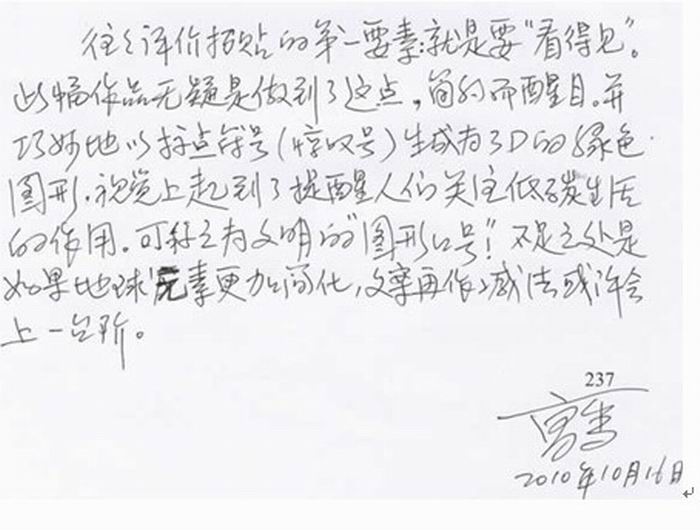 往往评价招贴的第一要素:就是要“看得见”。
此幅作品无疑是做到了这点，简约而醒目。并
巧妙地以标点符号(惊叹号)生成为3D的绿色
图形，视觉上起到了提醒人们关注低碳生活
的作用。可称之为文明的“图形口号”！不足之处是
如果地球元素更加简化，文字再作减法或许会
上一台阶。
237
2010年10月16日